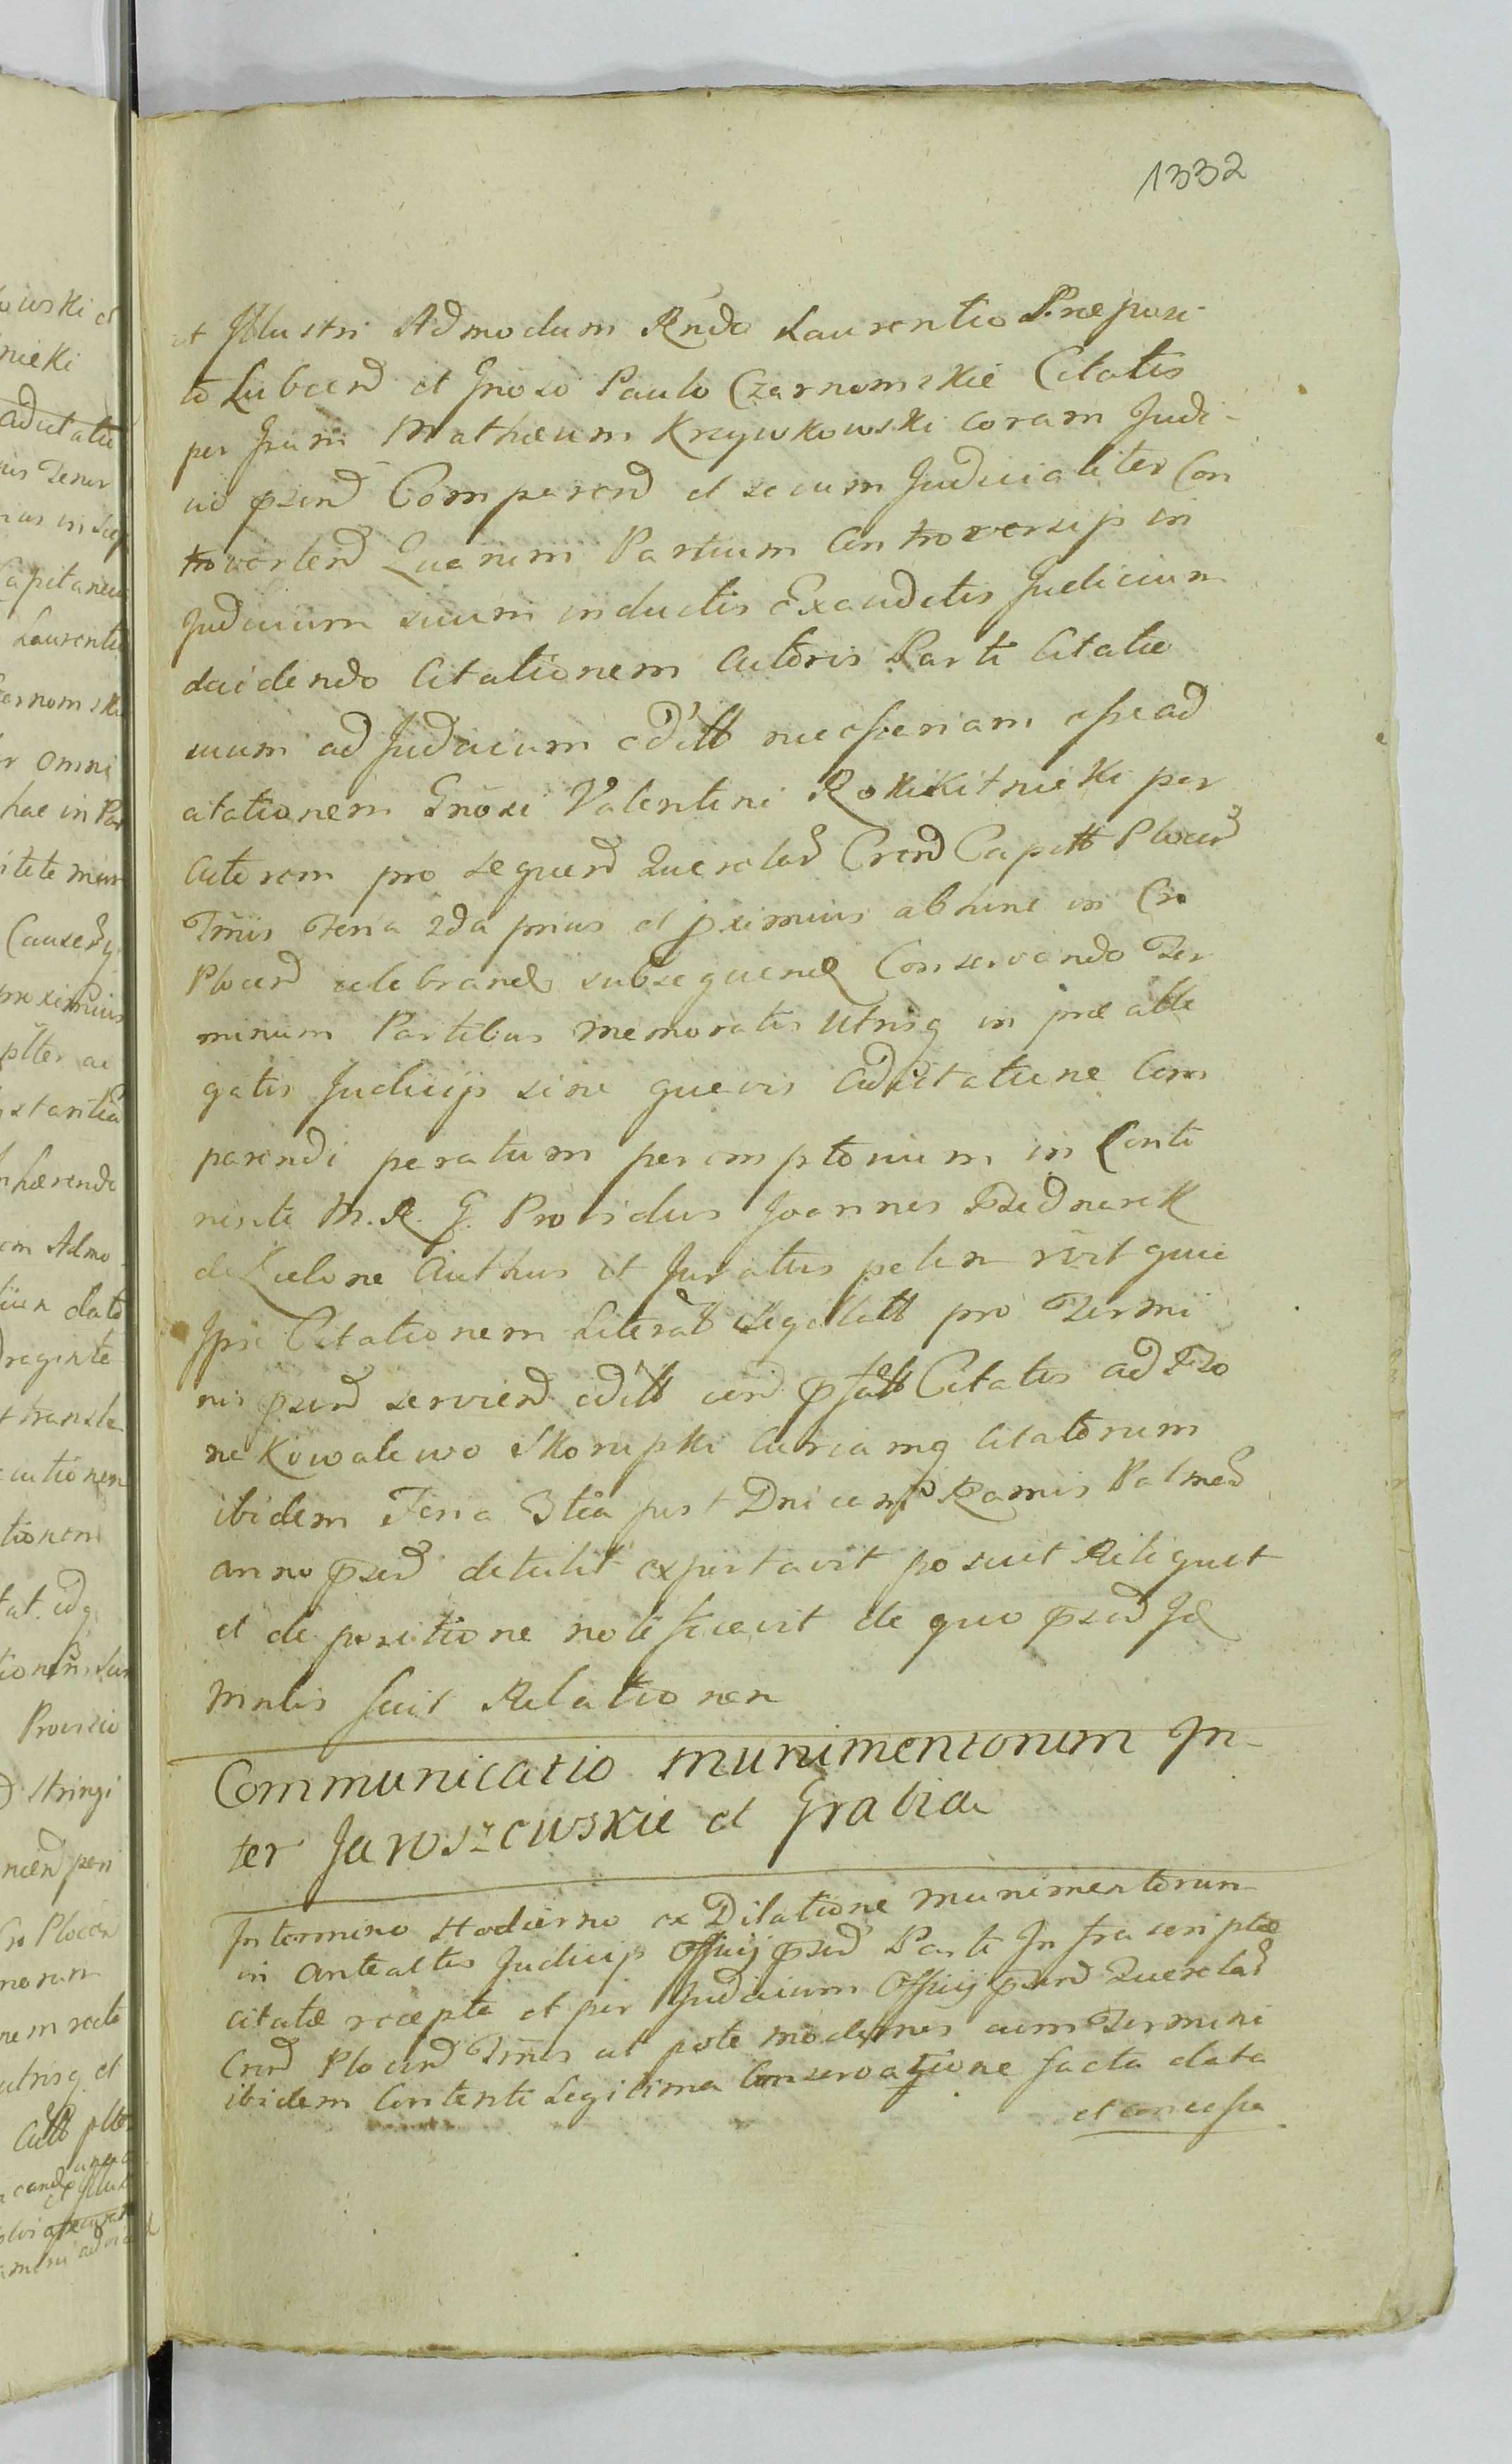 1332
et Illustri Admodum Rndo Laurentio Præposi-
to Lubcen et Gnoso Paulo Czarnomskie Citatis
per Grum Mathæum Krzywkowski coram Judi-
cio pæsen Comparen et secum Judicialiter Con
troverten Quarum Partium Controversijs in
Judicium suum inductis Exauditis Judicium
decidendo Citationem Actoris Parti Citatæ
unum ad Judicium edit necessariam esse ad
citationem Gnosi Valentini Rokikitnicki per
Actorem pro sequen Querelar Cren Capitt Plocen
Tmis Feria 2da prius et pximius abhinc in Cro
Plocen celebrand subsequend Conservando Ter
minum Partibus memoratis Utrisq in præalle
gatis Judicijs sine quavis Adcitatione Com
parendi peratum peremptorium in Conti
nenti M. R. G. Providus Joannes Bednarek
de Lelone Authus et Juratus palam rvit quia
Ipse Citationem Literat Sigillatt pro Termi
nis psen servien edit cen psalt Citatis ad Bo
na Kowalewo Skorupki Curiamq Citatorum
ibidem Feria 3tia post Dnicam Ramis Palmar
anno psen detulit exportavit posuit Reliquit
et de positione notificavit de quo psen Jd
Mntlis fecit Relationem
Communicatio Munimentorum In-
ter Jaroszewskie et Grabia
In termino Hodierno ex Dilatione Munimentorum
in Anteactis Judicijs Officij psen Parti Infrascriptæ
citatæ recepta et per Judicium Officij psen Querelar
Cren Plocen Tmis ut pote modernis cum Termini
ibidem Contenti Legitima Conservatione facta data
et concessa

owski et
nicki
adcitatu
Capitaneu
Laurentio
r omni
proximius
stantia
hærendo
om Admo
dato
tionem
Provisio
stringi
Cro Plocen
utrisq et